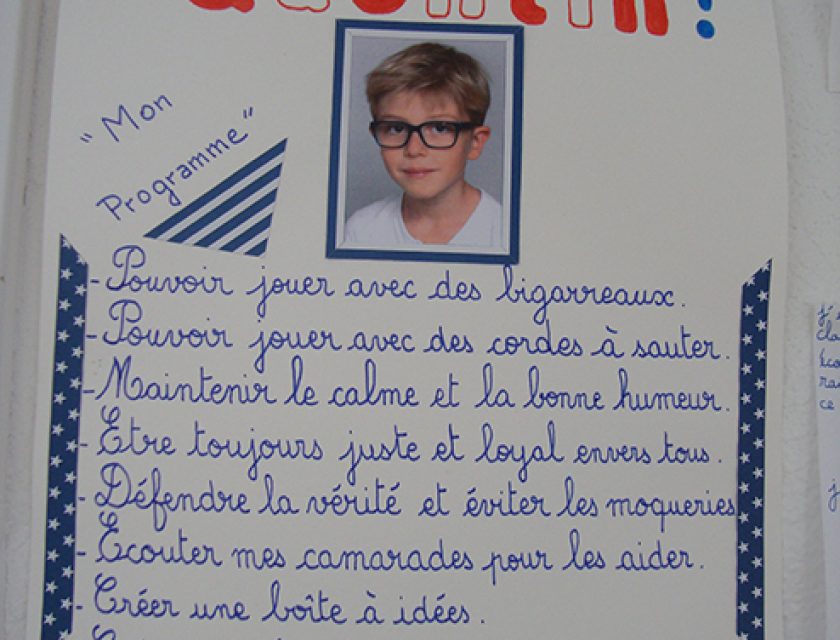 Quentin !
"Mon
Programme"
- Pouvoir jouer avec des bigarreaux.
- Pouvoir jouer avec des cordes à sauter.
- Maintenir le calme et la bonne humeur.
- Être toujours juste et loyal envers tous.
- Défendre la vérité et éviter les moqueries
- Écouter mes camarades pour les aider.
- Créer une boîte à idées.